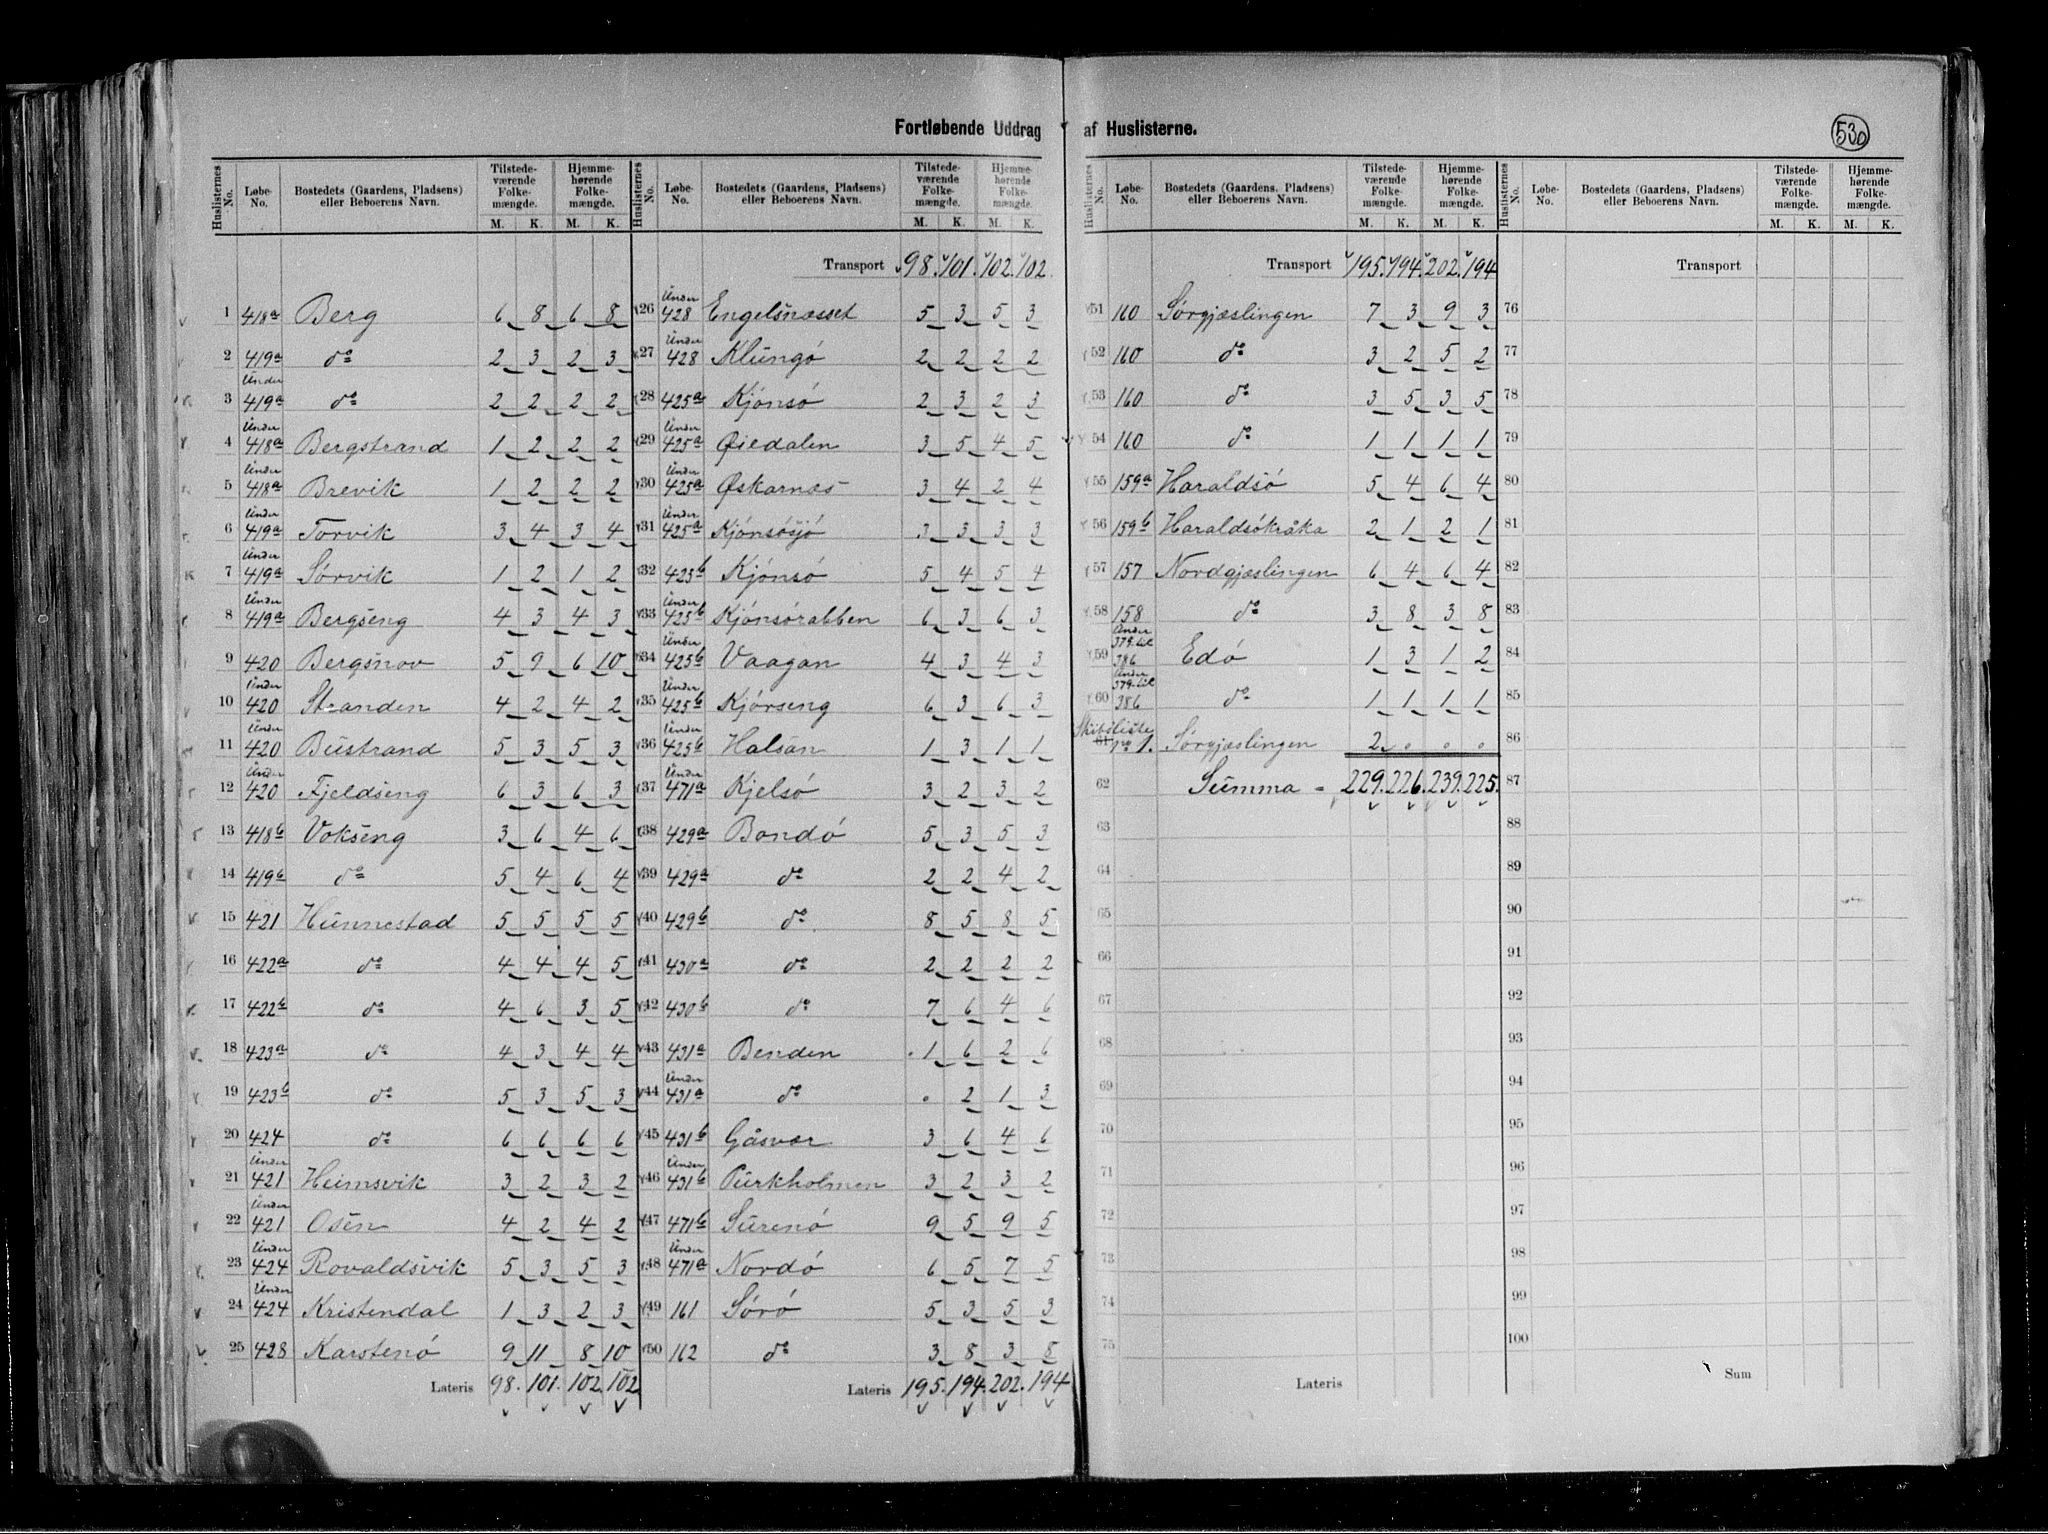 Fortløbende Uddrag af Huslisterne.
530
Huslisternes No. Løbe-No. Bostedets (Gaardens, Pladsens) eller Beboerens Navn. Tilstedeværende Folkemængde. M. K. Hjemmehørende Folkemængde. M. K.
1 418a Berg 6 8 6 8
2 419a do 2 3 2 3
3 Under 419a do 2 2 2 2
4 Under 418a Bergstrand 1 2 2 2
5 Under 418a Brevik 1 2 2 2
6 Under 419a Torvik 3 4 3 4
7 Under 419a Sørvik 1 2 1 2
8 Under 419a Bergseng 4 3 4 3
9 420 Bergsnov 5 9 6 10
10 Under 420 Stranden 4 2 4 2
11 Under 420 Bustrand 5 3 5 3
12 Under 420 Fjeldseng 6 3 6 3
13 418b Vokseng 3 6 4 6
14 419b do 5 4 6 4
15 421 Hunnestad 5 5 5 5
16 422a do 4 4 4 5
17 422b do 4 6 3 5
18 423a do 4 3 4 4
19 423b do 5 3 5 3
20 424 do 6 6 6 6
21 Under 421 Heimsvik 3 2 3 2
22 Under 421 Osen 4 2 4 2
23 Under 424 Rovaldsvik 5 3 5 3
24 Under 424 Kristendal 1 3 2 3
25 428 Karstenø 9 11 8 10
Lateris 98. 101. 102 102
Huslisternes No. Løbe-No. Bostedets (Gaardens, Pladsens) eller Beboerens Navn. Tilstedeværende Folkemængde. M. K. Hjemmehørende Folkemængde. M. K.
Transport 98. 101. 102. 102.
26 Under 428 Engelsnæsset 5 3 5 3
27 Under 428 Klungø 2 2 2 2
28 425a Kjønsø 2 3 2 3
29 Under 425a Øiedalen 3 5 4 5
30 Under 425a Øskarnæs 3 4 2 4
31 Under 425a Kjønsøsjø 3 3 3 3
32 425b Kjønsø 5 4 5 4
33 Under 425b Kjønsørabben 6 3 6 3
34 Under 425b Vaagan 4 3 4 3
35 Under 425b Kjørseng 6 3 6 3
36 Under 425b Halsan 1 3 1 1
37 Under 471a Kjelsø 3 2 3 2
38 429a Bondø 5 3 5 3
39 429a do 2 2 4 2
40 429b do 8 5 8 5
41 430a do 2 2 2 2
42 430b do 7 6 4 6
43 431a Benden 1 6 2 6
44 Under 431a do . 2 1 3
45 431b Gåsvær 3 6 4 6
46 Under 431b Purkholmen 3 2 3 2
47 471b Surenø 9 5 9 5
48 Under 471a Nordø 6 5 7 5
49 161 Sørø 5 3 5 3
50 162 do 3 8 3 8
Lateris 195. 194. 202. 194
Huslisternes No. Løbe-No. Bostedets (Gaardens, Pladsens) eller Beboerens Navn. Tilstedeværende Folkemængde. M. K. Hjemmehørende Folkemængde. M. K.
Transport 195. 194. 202. 194
51 160 Sørgjæslingen 7 3 9 3
52 160 do 3 2 5 2
53 160 do 3 5 3 5
54 160 do 1 1 1 1
55 159a Haraldsø 5 4 6 4
56 159b Haraldsøkråka 2 1 2 1
57 157 Nordgjæslingen 6 4 6 4
58 158 do 3 8 3 8
59 Under 379 til 386 Edø 1 3 1 2
60 Under 379 til 386 do 1 1 1 1
Skibsliste 61 no 1. Sørgjæslingen 2 . . .
62 Summa = 229. 226. 239. 225.
63
64
65
66
67
68
69
70
71
72
73
74
75
Lateris
Huslisternes No. Løbe-No. Bostedets (Gaardens, Pladsens) eller Beboerens Navn. Tilstedeværende Folkemængde. M. K. Hjemmehørende Folkemængde. M. K.
Transport
76
77
78
79
80
81
82
83
84
85
86
87
88
89
90
91
92
93
94
95
96
97
98
99
100
Sum